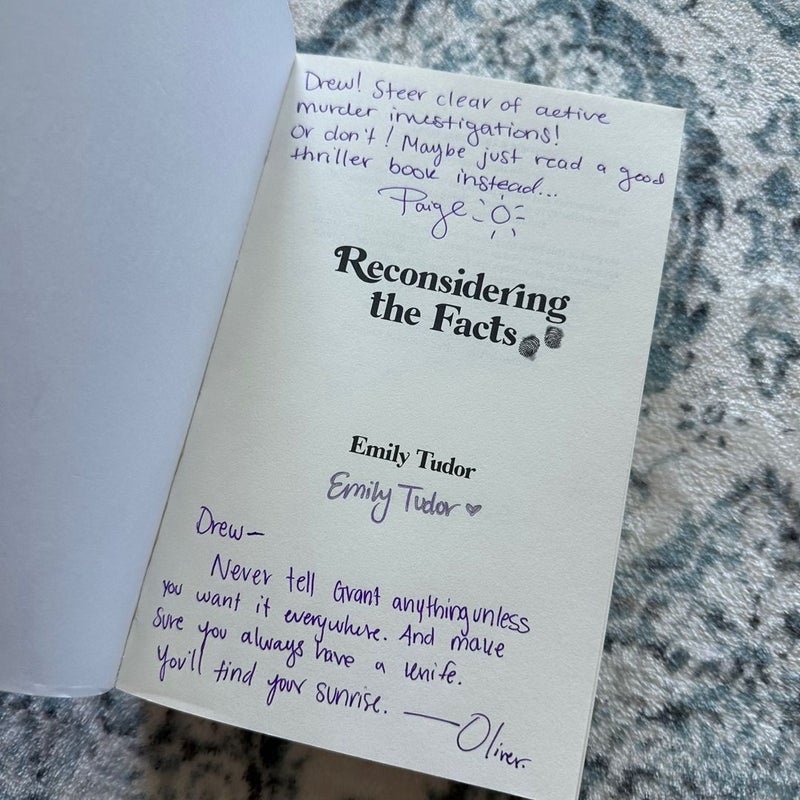 Drew! Steer clear of active
murder investigations!
Or don't! Maybe just read a good
thriller book instead...
Paige
Reconsidering
the Facts
Emily Tudor
Emily Tudor
Drew—
Never tell Grant anything unless
you want it everywhere. And make
sure you always have a knife.
You'll find your sunrise. —Oliver.